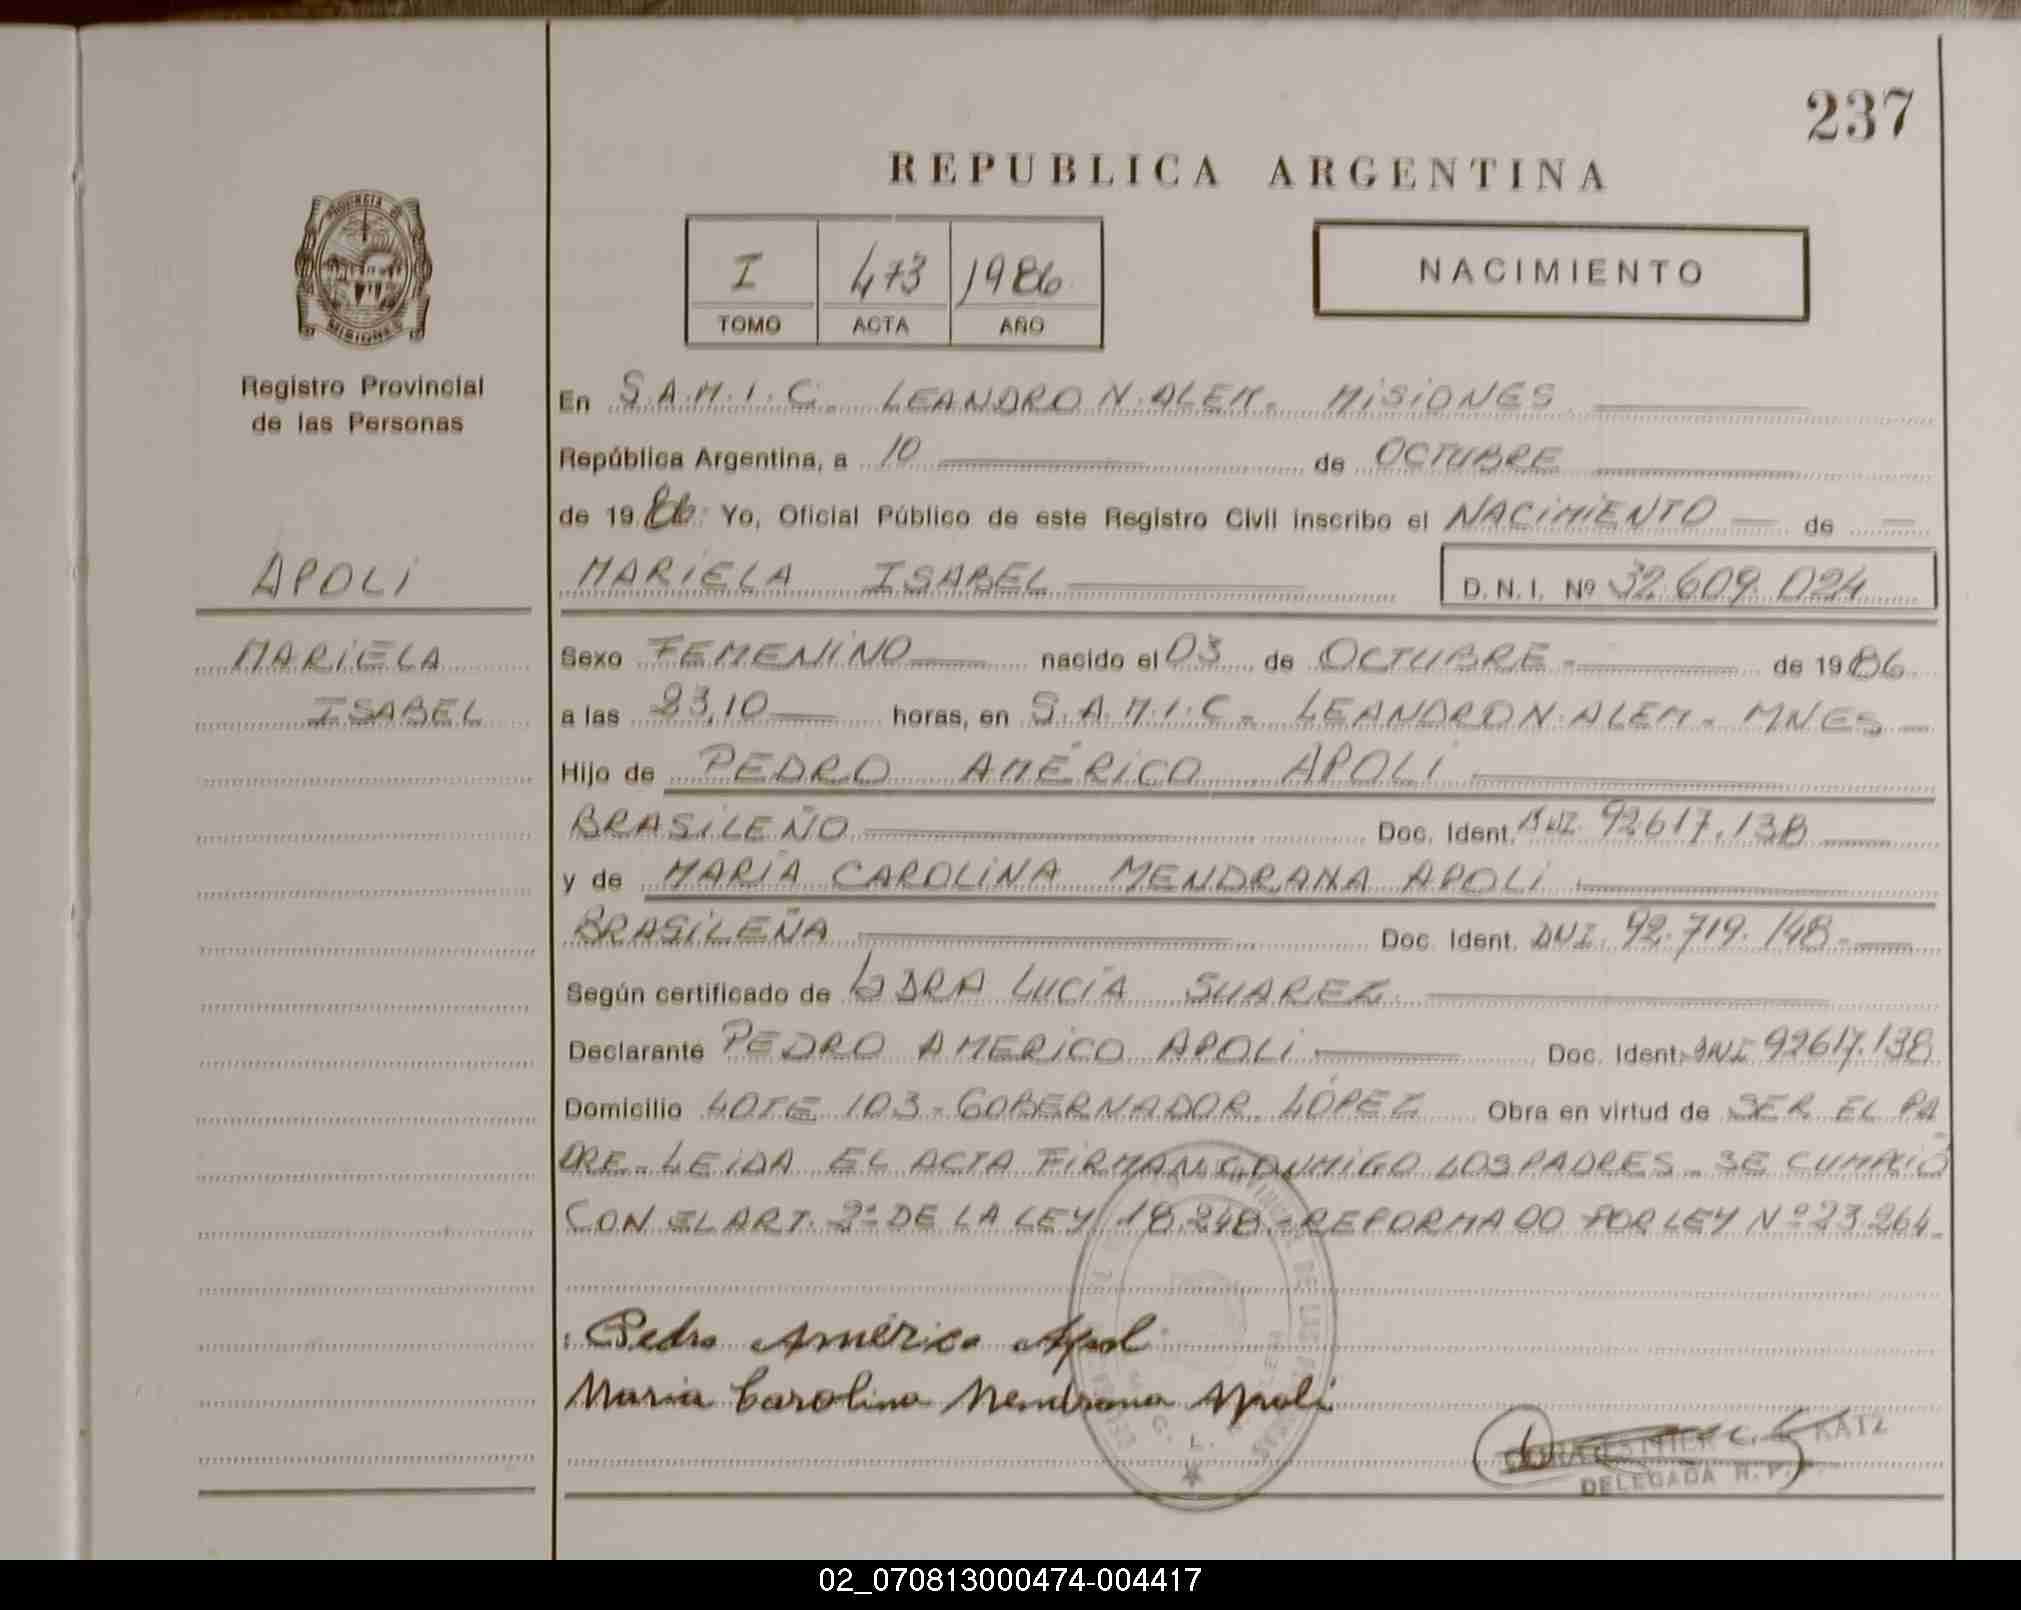 237
REPUBLICA ARGENTINA
PROVINCIA DE
MISIONES
Registro Provincial
de las Personas
I 473 1986
TOMO ACTA AÑO
NACIMIENTO
En S.A.M.I.C. LEANDRO N. ALEM. MISIONES
República Argentina, a 10 de OCTUBRE
de 1986 Yo, Oficial Público de este Registro Civil inscribo el NACIMIENTO de
APOLI
MARIELA ISABEL D.N.I. Nº 32.609.024
MARIELA
ISABEL
Sexo FEMENINO nacido el 03 de OCTUBRE de 1986
a las 23,10 horas, en S.A.M.I.C. LEANDRO N. ALEM. MNES
Hijo de PEDRO AMÉRICO APOLI
BRASILEÑO Doc. Ident. DNI. 92617.138
y de MARÍA CAROLINA MENDRANA APOLI
BRASILEÑA Doc. Ident. DNI. 92.719.148
Según certificado de LA DRA LUCÍA SUAREZ
Declarante PEDRO AMERICO APOLI Doc. Ident. DNI 92617.138
Domicilio LOTE 103 - GOBERNADOR LÓPEZ Obra en virtud de SER EL PA
DRE. LEIDA EL ACTA FIRMAN CONMIGO LOS PADRES. SE CUMPLIÓ
CON EL ART. 2º DE LA LEY 18.248 - REFORMADO POR LEY Nº 23.264
Pedro Américo Apol
Maria Carolina Mendrana Apoli
KATZ
DELEGADA R.P.
02_070813000474-004417